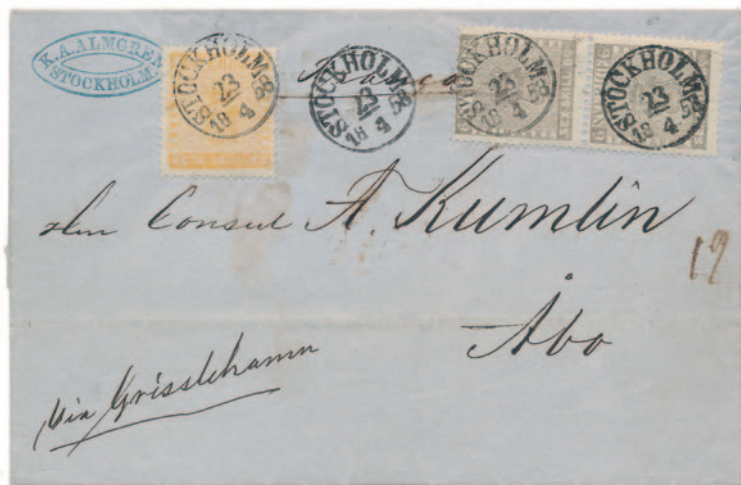 K.A. ALMGREN
STOCKHOLM.
STOCKHOLM
23
4
1858
STOCKHOLM
23
4
1858
STOCKHOLM
23
4
1858
STOCKHOLM
23
4
1858
Franco
Herr Consul A. Kumlin
19
Åbo
via Grisslehamn